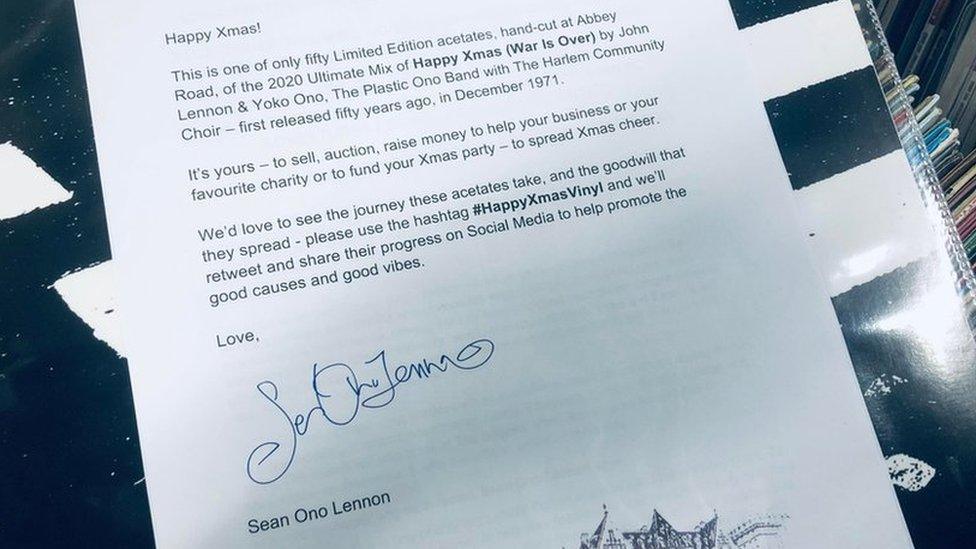 Happy Xmas!
This is one of only fifty Limited Edition acetates, hand-cut at Abbey
Road, of the 2020 Ultimate Mix of Happy Xmas (War Is Over) by John
Lennon & Yoko Ono, The Plastic Ono Band with The Harlem Community
Choir – first released fifty years ago, in December 1971.
It's yours – to sell, auction, raise money to help your business or your
favourite charity or to fund your Xmas party – to spread Xmas cheer.
We'd love to see the journey these acetates take, and the goodwill that
they spread - please use the hashtag #HappyXmasVinyl and we'll
retweet and share their progress on Social Media to help promote the
good causes and good vibes.
Love,
Sean Ono Lennon
Sean Ono Lennon